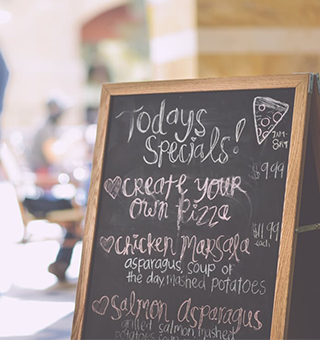 Todays
Specials!
7am-
8am
Create your
own Pizza
$9.99
Chicken Marsala
$11.99
each
asparagus, soup of
the day, Mashed Potatoes
Salmon Asparagus
grilled salmon, mashed
potatoes, soup